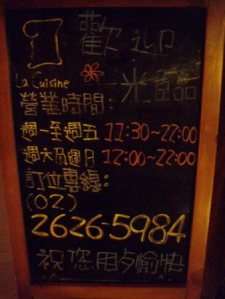 歡迎
La Cuisine
光臨
營業時間:
週一至週五 11:30~22:00
週六及週日 12:00~22:00
訂位專線:
(02)
2626-5984
祝您用夕愉快